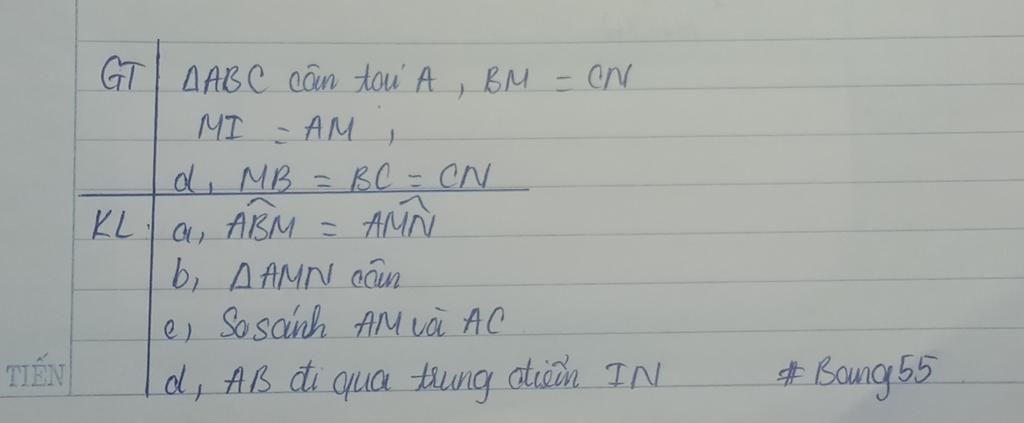 GT ΔABC cân tại A, BM = CN
MI = AM,
d, MB = BC = CN
KL. a, \widehat{ABM} = \widehat{AMN}
b, ΔAMN cân
c, So sánh AM và AC
d, AB đi qua trung điểm IN #Boung55
TIẾN